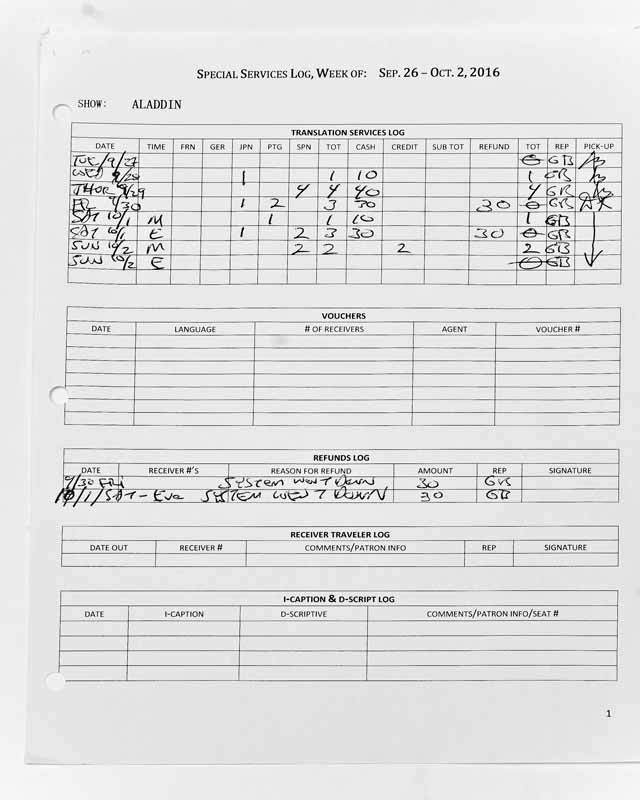 SPECIAL SERVICES LOG, WEEK OF: SEP. 26 – OCT. 2, 2016
SHOW: ALADDIN
TRANSLATION SERVICES LOG
DATE TIME FRN GER JPN PTG SPN TOT CASH CREDIT SUB TOT REFUND TOT REP PICK-UP
TUE/9/27 0 GB
WED 9/28 1 1 10 1 GB
THUR 9/29 4 4 40 4 GB
FRI 9/30 1 2 3 30 30 0 GB
SAT 10/1 M 1 1 10 1 GB
SAT 10/1 E 1 2 3 30 30 0 GB
SUN 10/2 M 2 2 2 2 GB
SUN 10/2 E 0 GB
VOUCHERS
DATE LANGUAGE # OF RECEIVERS AGENT VOUCHER #
REFUNDS LOG
DATE RECEIVER #'S REASON FOR REFUND AMOUNT REP SIGNATURE
9/30 FRI SYSTEM WENT DOWN 30 GB
10/1/SAT-Eve SYSTEM WENT DOWN 30 GB
RECEIVER TRAVELER LOG
DATE OUT RECEIVER # COMMENTS/PATRON INFO REP SIGNATURE
I-CAPTION & D-SCRIPT LOG
DATE I-CAPTION D-SCRIPTIVE COMMENTS/PATRON INFO/SEAT #
1